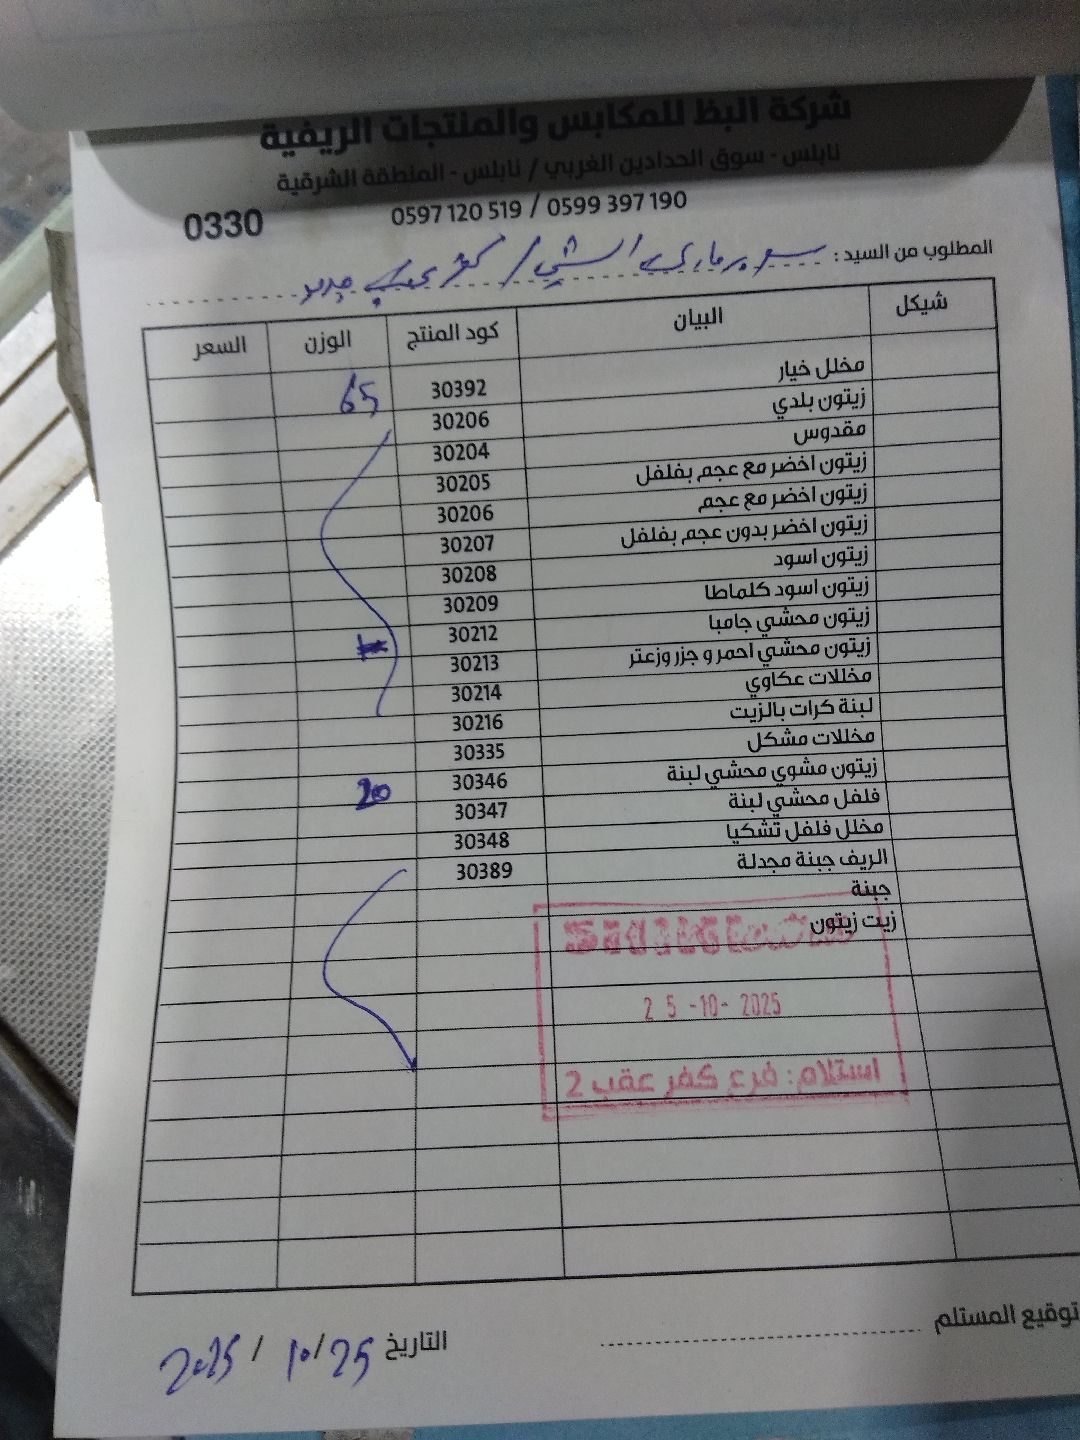 شركة البظ للمكابس والمنتجات الريفية
نابلس - سوق الحدادين الغربي / نابلس - المنطقة الشرقية
0597 120 519 / 0599 397 190
0330
المطلوب من السيد : سوبر ماركت الشني / كفر عقب جديد
شيكل البيان كود المنتج الوزن السعر
مخلل خيار 30392 65
زيتون بلدي 30206
مقدوس 30204
زيتون اخضر مع عجم بفلفل 30205
زيتون اخضر مع عجم 30206
زيتون اخضر بدون عجم بفلفل 30207
زيتون اسود 30208
زيتون اسود كلماطا 30209
زيتون محشي جامبا 30212
زيتون محشي احمر و جزر وزعتر 30213
مخللات عكاوي 30214
لبنة كرات بالزيت 30216
مخللات مشكل 30335
زيتون مشوي محشي لبنة 30346 20
فلفل محشي لبنة 30347
مخلل فلفل تشكيا 30348
الريف جبنة مجدلة 30389
جبنة
زيت زيتون
25 -10- 2025
استلام: فرع كفر عقب 2
توقيع المستلم
التاريخ 25 / 10 / 2025